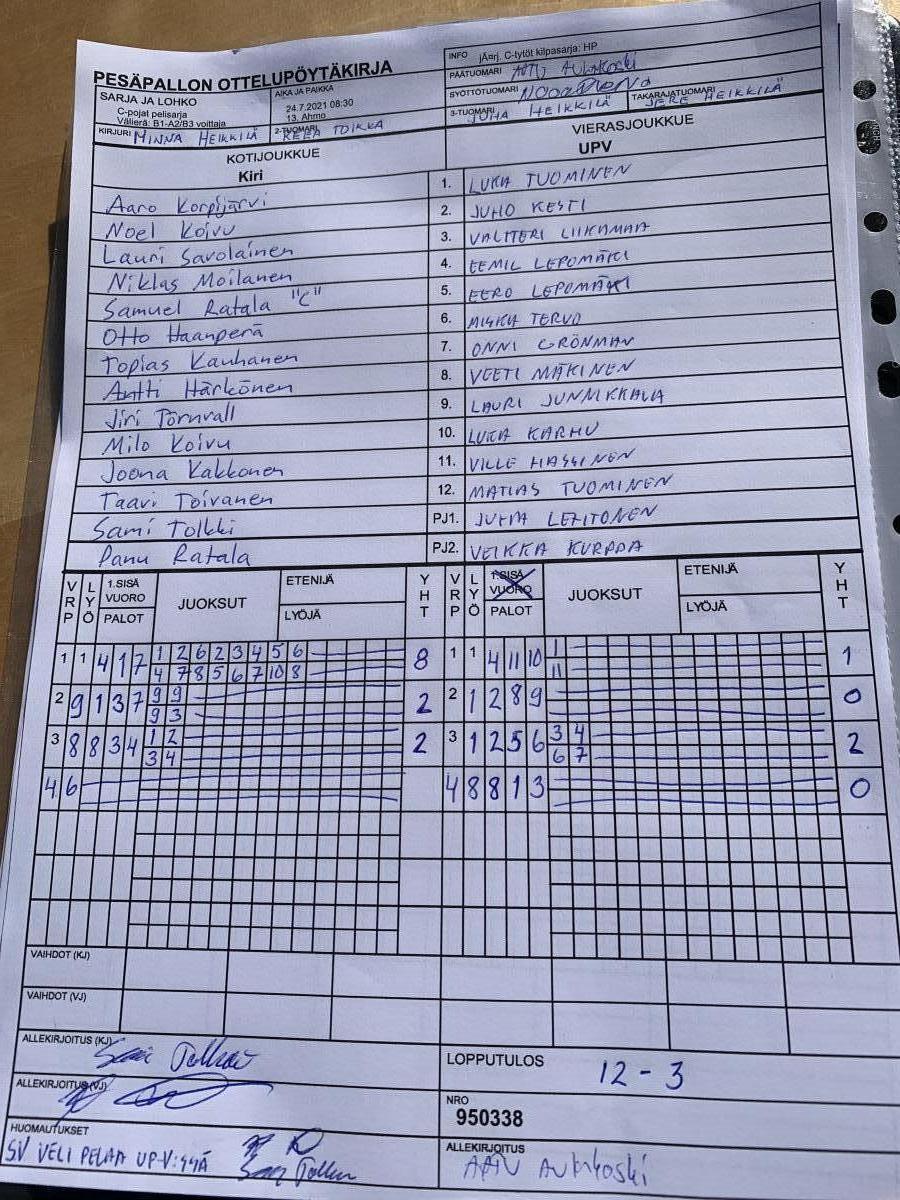 PESÄPALLON OTTELUPÖYTÄKIRJA
INFO jAnj. C-tytöt kilpasarja: HP
PÄÄTUOMARI
SYÖTTÖTUOMARI
SARJA JA LOHKO
C-pojat pelisarja
Välierä: B1-A2/B3 voittaja
AIKA JA PAIKKA
24.7.2021 08:30
13. Ahmo
3-TUOMARI JUHA HEIKKILÄ
TAKARAJATUOMARI JERE HEIKKILÄ
KIRJURI MINNA HEIKKILÄ
2-TUOMARI REEA TOIKKA
KOTIJOUKKUE
Kiri
VIERASJOUKKUE
UPV
Aaro Korpijärvi 1. LUKA TUOMINEN
Noel Koivu 2. JUHO KESTI
Lauri Savolainen 3. VALTTERI LIIKAMAA
Niklas Moilanen 4. EEMIL LEPOMÄKI
Samuel Ratala "C" 5. EERO LEPOMÄKI
Otto Haanperä 6. MISKA TERVO
Topias Kauhanen 7. ONNI GRÖNMAN
Antti Härkönen 8. VEETI MÄKINEN
Jiri Törnvall 9. LAURI JUNNIKKALA
Milo Koivu 10. LUKA KARHU
Joona Kakkonen 11. VILLE HASSINEN
Taavi Toivanen 12. MATIAS TUOMINEN
Sami Tolkki PJ1. JUHA LEHTONEN
Panu Ratala PJ2. VEIKKA KURPPA
VRP LYÖ 1.SISÄ VUORO PALOT JUOKSUT ETENIJÄ LYÖJÄ YHT
VRP LYÖ 1.SISÄ VUORO PALOT JUOKSUT ETENIJÄ LYÖJÄ YHT
1 1 4 1 7 1 2 6 2 3 4 5 6 8 1 1 4 11 10 1 1
4 7 8 5 6 7 10 8 11
2 9 1 3 7 9 9 2 2 1 2 8 9 0
9 3
3 8 8 3 4 1 2 2 3 1 2 5 6 3 4 2
3 4 6 7
4 6 4 8 8 1 3 0
VAIHDOT (KJ)
VAIHDOT (VJ)
ALLEKIRJOITUS (KJ)
LOPPUTULOS 12 - 3
ALLEKIRJOITUS (VJ)
NRO
950338
HUOMAUTUKSET
SV VELI PELAA UP-V:SSÄ
ALLEKIRJOITUS